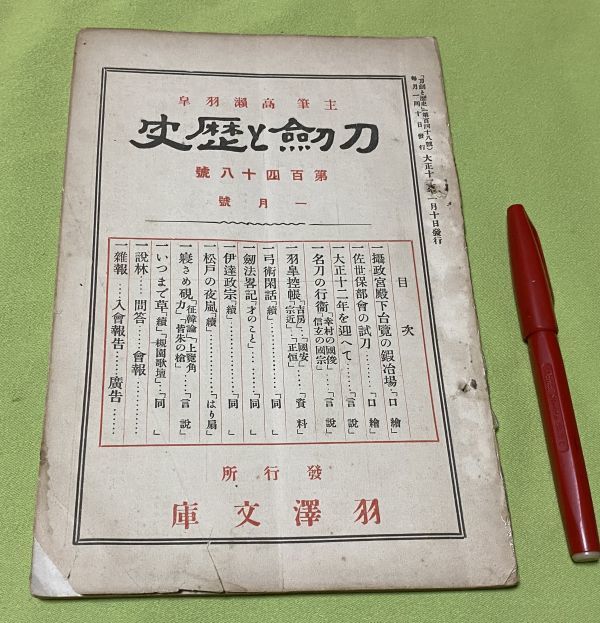 『刀劍と歷史』(第百四十八號)
每月一回十日發行
大正十二年一月十日發行
主筆高瀨羽皐
刀劍と歷史
第百四十八號
一月號
目次
一攝政宮殿下台覽の鍛冶場「口繪」
一佐世保部會の試刀……「口繪」
一大正十二年を迎へて……「言說」
一名刀の行衞「幸村の國俊」「信玄の國宗」…「言說」
一羽皐控帳「吉房」「宗近」「國安」「正恒」…「資料」
一弓術閑話「續」……「同」
一劍法畧記「才のこと」……「同」
一伊達政宗「續」……「同」
一松戶の夜嵐「續」……「はり扇」
一寢さめ硯「征韓論」「上覽角力」「皆朱の槍」…「言說」
一いつまで草「續」「槻園歌壇」…「同」
一說林……問答……會報……
一雜報……入會報告……廣告……
發行所
羽澤文庫